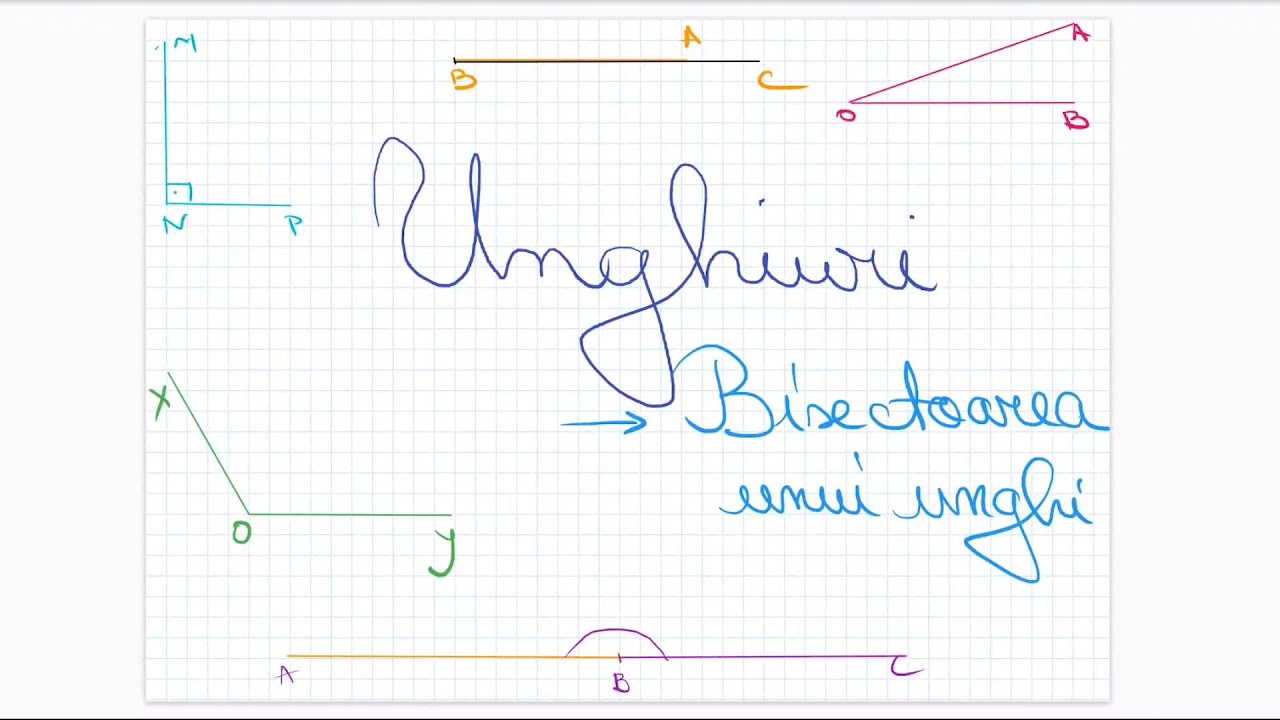 M
A
A
B
C
O
B
N
P
Unghiuri
x
→ Bisectoarea
unui unghi
O
y
A
B
C